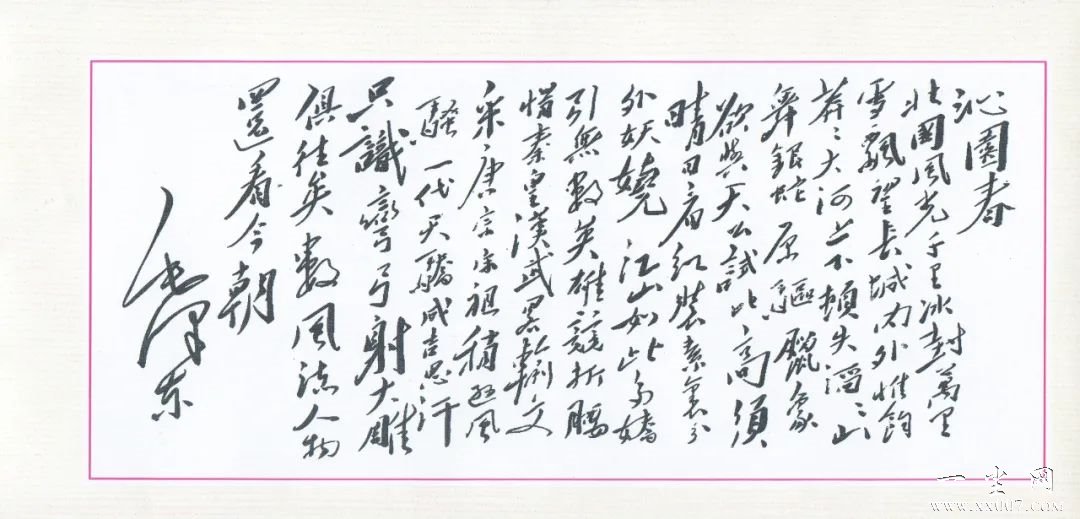 沁園春
北國風光千里冰封萬里
雪飄望長城内外惟餘
莽〻大河上下頓失滔〻山
舞銀蛇原驅臘象
欲與天公試比高須
晴日看紅裝素裹分
外妖嬈江山如此多嬌
引無數英雄競折腰
惜秦皇漢武略輸文
采唐宗宋祖稍遜風
騷一代天驕成吉思汗
只識彎弓射大雕
俱往矣數風流人物
還看今朝
毛澤東
一尘网
www.xx007.com